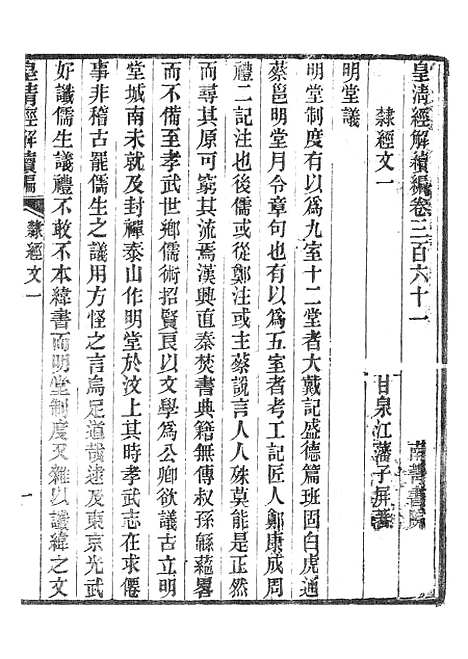 皇清經解續編卷三百六十一
南菁書院
隸經文一
甘泉江藩子屏著
明堂議
明堂制度有以爲九室十二堂者大戴記盛德篇班固白虎通
蔡邕明堂月令章句也有以爲五室者考工記匠人鄭康成周
禮二記注也後儒或從鄭注或主蔡說言人人殊莫能是正然
而尋其原可窮其流焉漢興直秦焚書典籍無傳叔孫緜蕝畧
而不備至孝武世鄉儒術招賢良以文學爲公卿欲議古立明
堂城南未就及封禪泰山作明堂於汶上其時孝武志在求僊
事非稽古罷儒生之議用方怪之言烏足道哉逮及東京光武
好讖儒生議禮不敢不本緯書而明堂制度又雜以讖緯之文
皇清經解續編
隸經文一
一